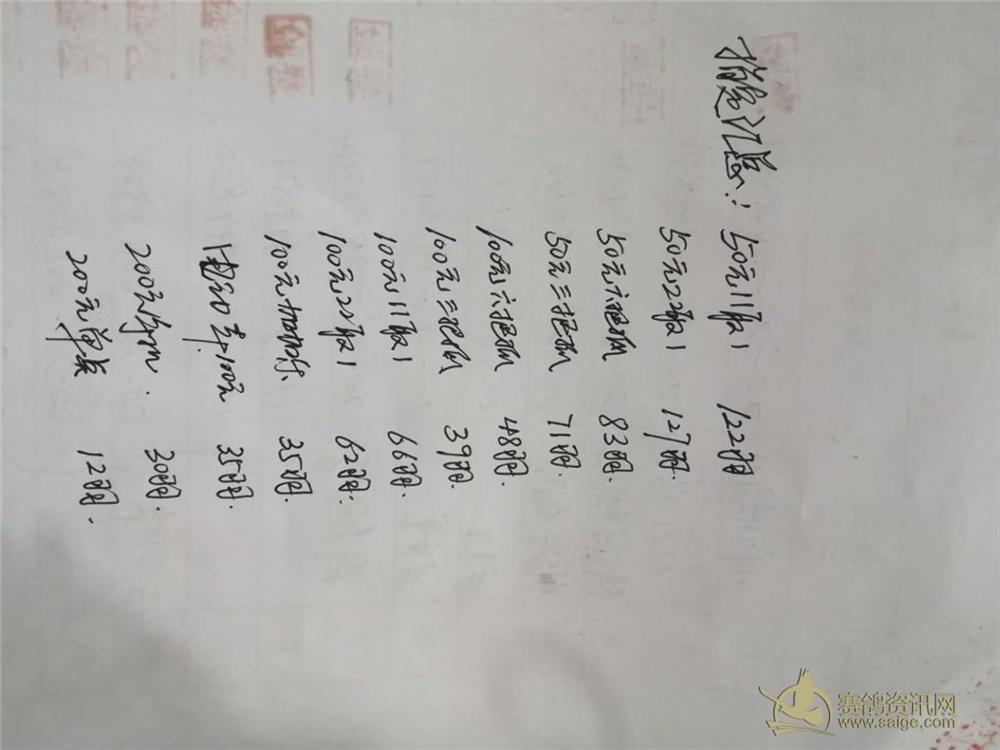 指定汇总: 50元11取1 122羽
50元22取1 127羽
50元六抱孤 83羽
50元三抱孤 71羽
100元六抱孤 48羽
100元三抱孤 39羽.
100元11取1 66羽.
100元22取1 62羽.
100元 35羽.
电动车.100元 35羽.
200元 30羽.
200元单点 12羽.
赛鸽资讯网
www.saige.com